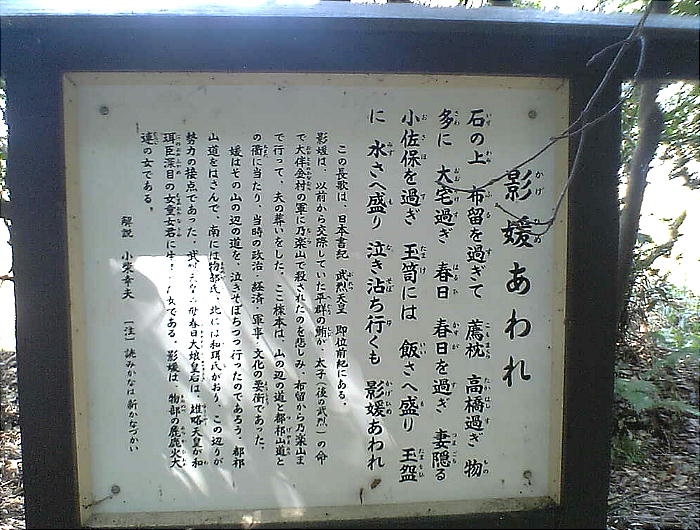 影媛あわれ
石の上 布留を過ぎて 薦枕 高橋過ぎ 物
多に 大宅過ぎ 春日 春日を過ぎ 妻隠る
小佐保を過ぎ 玉笥には 飯さへ盛り 玉盌
に 水さへ盛り 泣き沾ち行くも 影媛あわれ
この長歌は、日本書紀 武烈天皇 即位前紀にある。
影媛は、以前から交際していた平群の鮪が、太子（後の武烈）の命
で大伴金村の軍に乃楽山で殺されたのを悲しみ、布留から乃楽山ま
で行って、夫の葬いをした。ここ櫟本は、山の辺の道と都祁山道と
の衢に当たり、当時の政治 経済 軍事 文化の要衝であった。
媛はその山の辺の道を、泣きそぼちつつ行ったのであろう。都祁
山道をはさんで、南には物部氏、北には和珥氏がおり、この辺りが
勢力の接点であった。武烈 母春日大娘皇后は、雄略天皇が和
珥臣深目の女童女君に生 女である。影媛は、物部の麁鹿火大
連の女である。
解説 小栄幸夫 〔注〕読みかなは新かなづかい